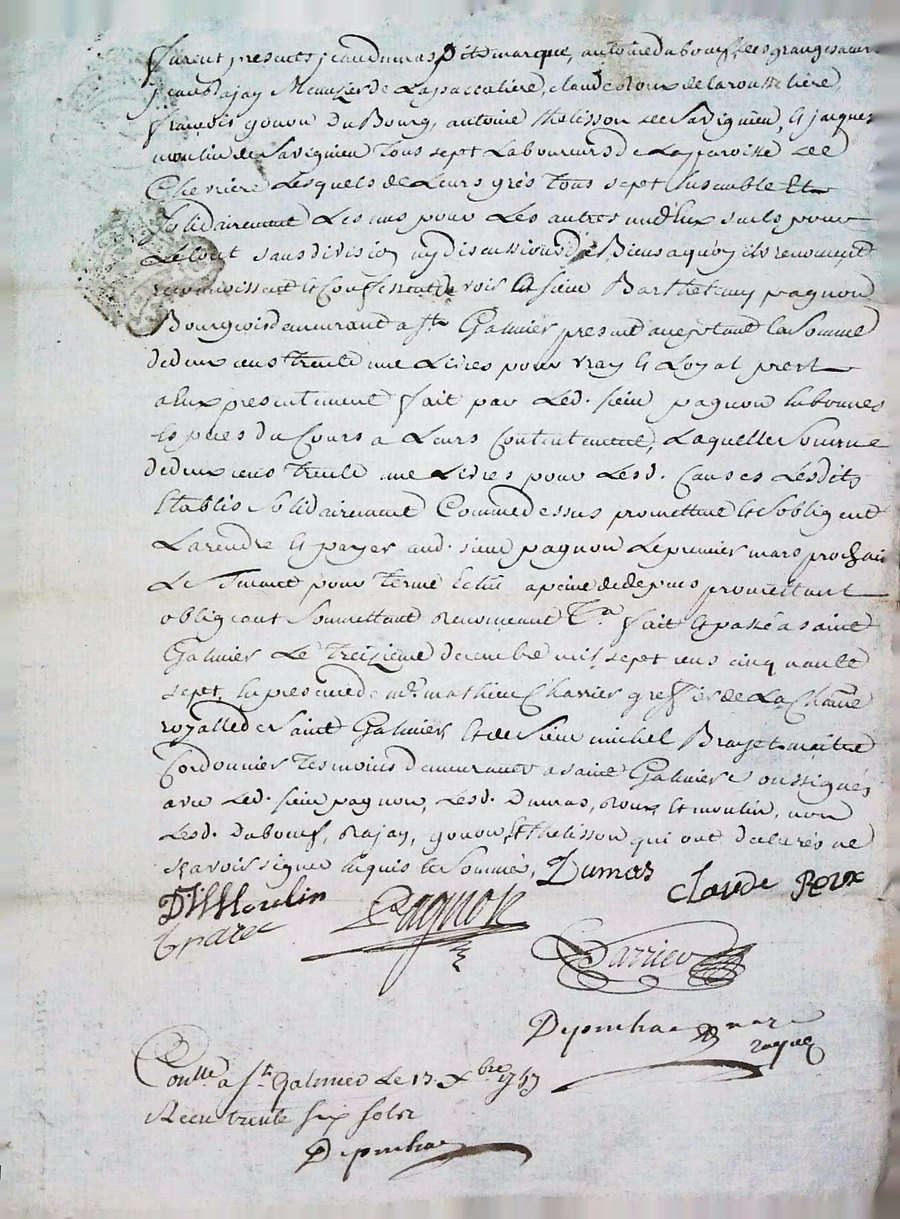 furent presents jean dumas dit demarque, antoine dubouef des granges
jean Rajay Meunier de Lassaccatiere, claude Roux de la rousseliere,
françois gouon du Bourg, antoine thelisson de Savignieu, Et jacques
moulin de Savignieu tous sept Laboureurs de La parroisse de
Chevriere Lesquels de Leurs grés tous sept Ensemble Et
solidairement Les uns pour Les autres un d'Eux seuls pour
Le tout sans division ny discussions de Biens a quoy ils renoncent
reconnoissent Et Confessent devoir a sieur Barthelemy pagnon
Bourgeois demeurant a st Galmier present acceptant la somme
de deux cens trente une Livres pour vray Et Loyal prest
a Eux presentement fait par Led. sieur pagnon En bonnes
Especes du Cours a Leurs Contentement, Laquelle somme
de deux cens trente une Livres pour Lesd. Causes Lesdits
Etablis solidairement Comme dessus promettent Et s'obligent
La rendre Et payer aud. sieur pagnon Le premier mars prochain
pour terme a peine de depens promettant
obligeant soumettant renonceant fait Et passé a saint
Galmier Le treizieme decembre mil sept cens cinquante
sept, En presence de me mathieu Charrier greffier de La Chatnie
royalle de Saint Galmier Et de sieur michel Brazet maitre
Cordonnier temoins demeurants a saint Galmier soussignés
avec Led. sieur pagnon, Lesd. Dumas, Roux, Et moulin, non
Lesd. duboeuf, Rajay, gouon, Et thelisson qui ont declarés ne
scavoir signer Enquis Et Sommé, Dumas
Claude Roux
Moulin
Pagnon

Conllé a st Galmier Le 13 Xbre 1757
Receu trente six sols